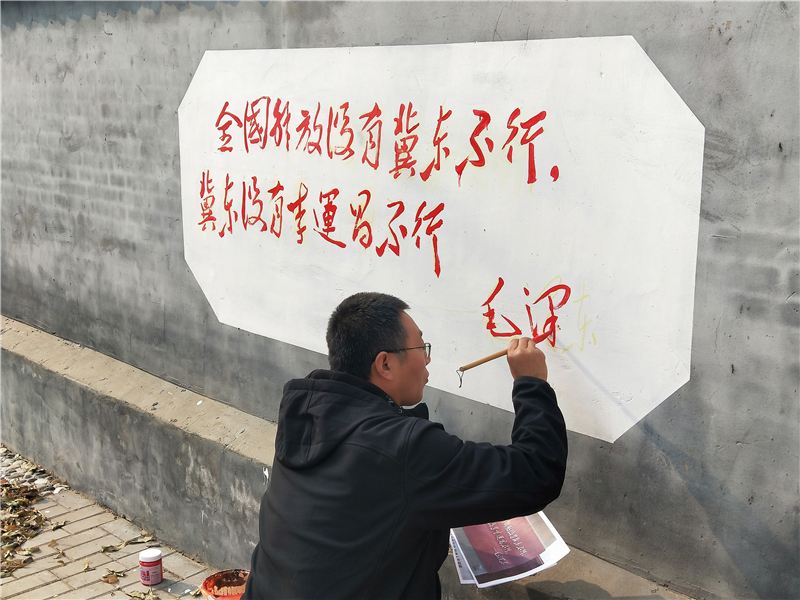 全國解放没有冀东不行，
冀东没有李運昌不行
毛泽东